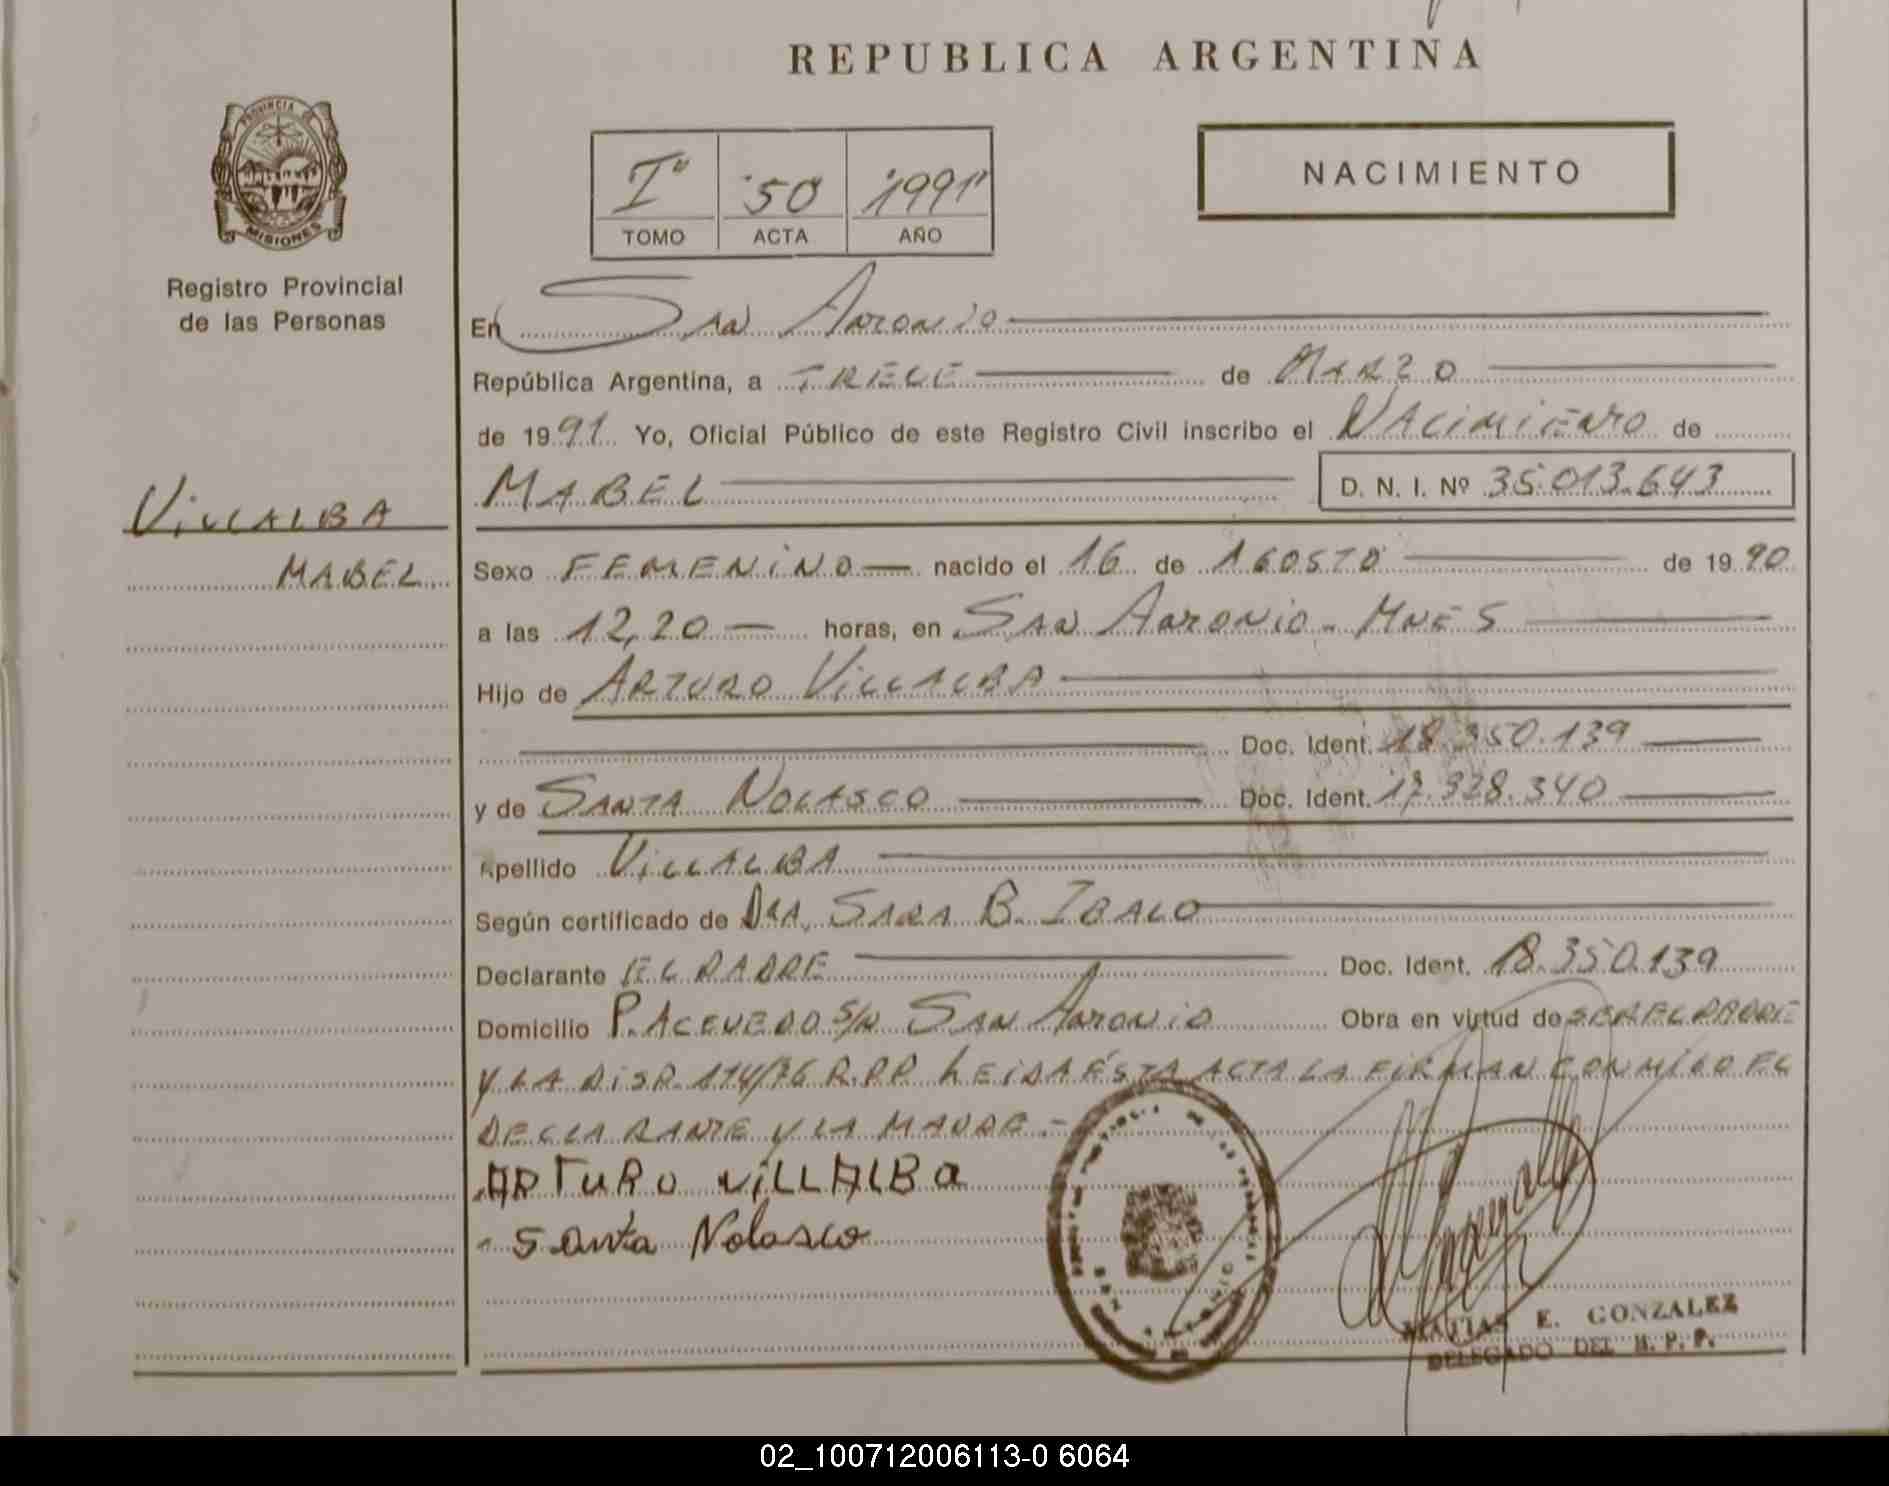 REPUBLICA ARGENTINA
PROVINCIA DE
MISIONES
Registro Provincial
de las Personas
Iº 50 1991
TOMO ACTA AÑO
NACIMIENTO
En San Antonio
República Argentina, a TRECE de MARZO
de 1991 Yo, Oficial Público de este Registro Civil inscribo el NACIMIENTO de
MABEL D. N. I. Nº 35.013.643
VILLALBA
MABEL
Sexo FEMENINO nacido el 16 de AGOSTO de 1990
a las 12,20 horas, en SAN ANTONIO - MNES
Hijo de ARTURO VILLALBA
Doc. Ident. 18.350.139
y de SANTA NOLASCO Doc. Ident. 17.328.340
Apellido VILLALBA
Según certificado de DRA. SARA B. IBALO
Declarante EL PADRE Doc. Ident. 18.350.139
Domicilio P. ACEVEDO S/N SAN ANTONIO Obra en virtud de SER EL PADRE
Y LA DISP. 114/76 R.P.P. LEIDA ÉSTA ACTA LA FIRMAN CONMIGO EL
DECLARANTE Y LA MADRE.-
ARTURO VILLALBA
Santa Nolasco
MATIAS E. GONZALEZ
DELEGADO DEL R. P. P.
02_100712006113-0 6064